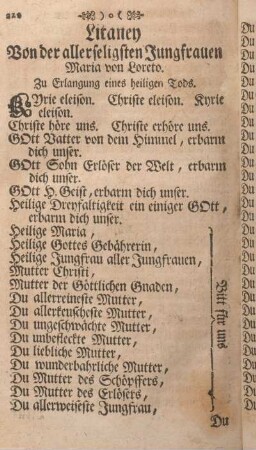 228 )o(
Litaney
Von der allerseligsten Jungfrauen
Maria von Loreto.
Zu Erlangung eines heiligen Tods.
KYrie eleison. Christe eleison. Kyrie
eleison.
Christe höre uns. Christe erhöre uns.
GOtt Vatter von dem Himmel, erbarm
dich unser.
GOtt Sohn Erlöser der Welt, erbarm
dich unser.
GOtt H. Geist, erbarm dich unser.
Heilige Dreyfaltigkeit ein einiger GOtt,
erbarm dich unser.
Heilige Maria,
Heilige Gottes Gebährerin,
Heilige Jungfrau aller Jungfrauen,
Mutter Christi,
Mutter der Göttlichen Gnaden,
Du allerreineste Mutter,
Du allerkeuscheste Mutter,
Du ungeschwächte Mutter,
Du unbefleckte Mutter,
Du liebliche Mutter,
Du wunderbahrliche Mutter,
Du Mutter des Schöpffers,
Du Mutter des Erlösers,
Du allerweiseste Jungfrau,
Bitt für uns
Du